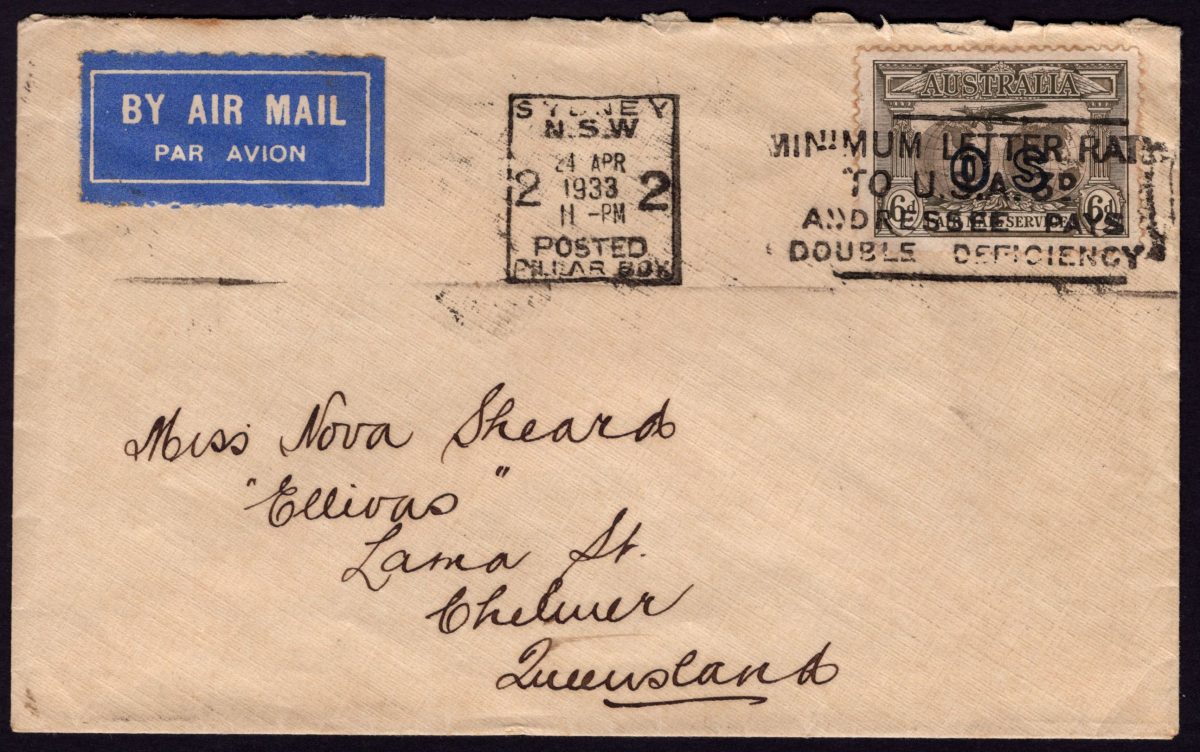 BY AIR MAIL
PAR AVION
SYDNEY
N.S.W
24 APR
2 1933 2
11 -PM
POSTED
PILLAR BOX
AUSTRALIA
OS
6d AIR MAIL SERVICE 6d
MINIMUM LETTER RATE
TO U.S.A. 3D
ADDRESSEE PAYS
DOUBLE DEFICIENCY
Miss Nova Sheard
"Ellivas"
Lama St.
Chelmer
Queensland